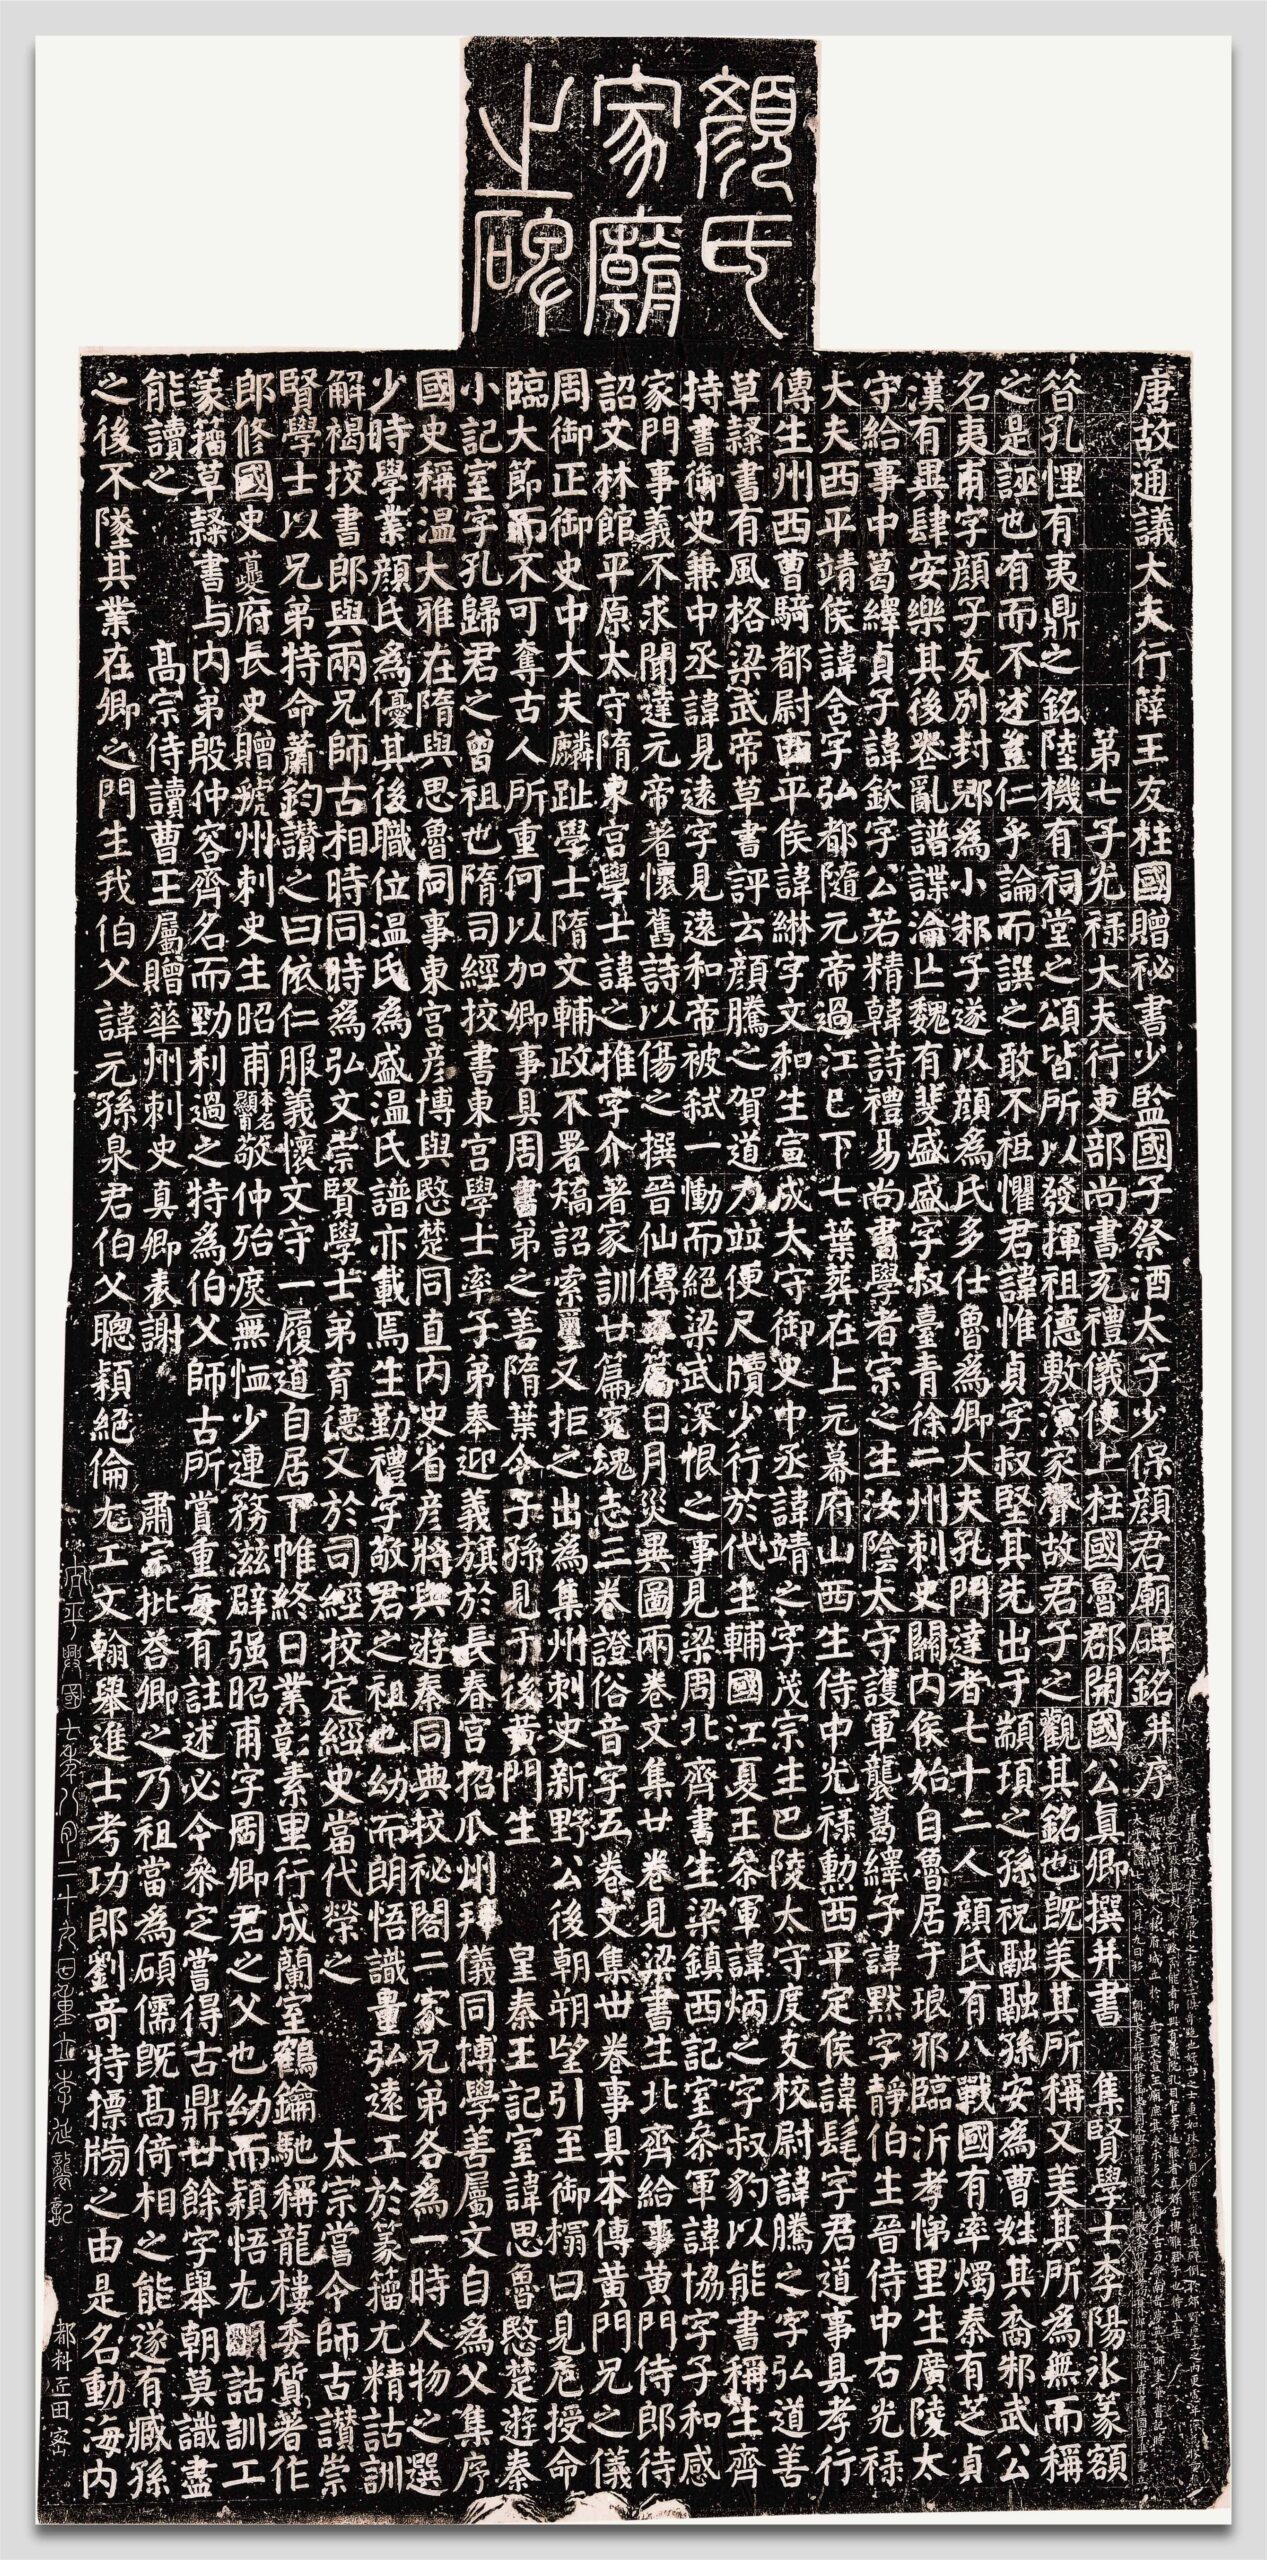 顏氏
家廟
之碑
唐故通議大夫行薛王友柱國贈祕書少監國子祭酒太子少保顏君廟碑銘并序
第七子光祿大夫行吏部尚書充禮儀使上柱國魯郡開國公真卿撰并書 集賢學士李陽冰篆額
昝孔悝有夷鼎之銘陸機有祠堂之頌皆所以發揮祖德敷演家聲故君子之觀其銘也既美其所稱又美其所為無而稱
之是誣也有而不述豈仁乎論而譔之敢不祗懼君諱惟貞字叔堅其先出于顓頊之孫祝融融孫安為曹姓其裔邾武公
名夷甫字顏子友別封郳為小邾子遂以顏為氏多仕魯為卿大夫孔門達者七十二人顏氏有八戰國有率燭秦有芝貞
漢有異肆安樂其後喪亂譜諜淪亡魏有斐盛盛字叔臺青徐二州刺史關內侯始自魯居于琅邪臨沂孝悌里生廣陵太
守給事中葛繹貞子諱欽字公若精韓詩禮易尚書學者宗之生汝陰太守護軍襲葛繹子諱默字靜伯生晉侍中右光祿
大夫西平靖侯諱含字弘都隨元帝過江已下七葉葬在上元幕府山西生侍中光祿勳西平定侯諱髦字君道事具孝行
傳生州西曹騎都尉西平侯諱綝字文和生宣成太守御史中丞諱靖之字茂宗生巴陵太守度支校尉諱騰之字弘道善
草隸書有風格梁武帝草書評云顏騰之賀道力竝便尺牘少行於代生輔國江夏王參軍諱炳之字叔豹以能書稱生齊
持書御史兼中丞諱見遠字見遠和帝被弒一慟而絕梁武深恨之事見梁周北齊書生梁鎮西記室參軍諱協字子和感
家門事義不求聞達元帝著懷舊詩以傷之撰晉仙傳五篇日月災異圖兩卷文集廿卷見梁書生北齊給事黃門侍郎待
詔文林館平原太守隋東宮學士諱之推字介著家訓廿篇冤魂志三卷證俗音字五卷文集卅卷事具本傳黃門兄之儀
周御正御史中大夫麟趾學士隋文輔政不署矯詔索璽又拒之出為集州刺史新野公後朝朔望引至御榻曰見危授命
臨大節而不可奪古人所重何以加卿事具周書弟之善隋葉令子孫見于後黃門生 皇秦王記室諱思魯愍楚遊秦
小記室字孔歸君之曾祖也隋司經挍書東宮學士率子弟奉迎義旗於長春宮招瓜州拜儀同博學善屬文自為父集序
國史稱溫大雅在隋與思魯同事東宮彥博與愍楚同直內史省彥將與遊秦同典校祕閣二家兄弟各為一時人物之選
少時學業顏氏為優其後職位溫氏為盛溫氏譜亦載焉生勤禮字敬君之祖也幼而朗悟識量弘遠工於篆籀尤精詁訓
解褐挍書郎與兩兄師古相時同時為弘文崇賢學士弟育德又於司經校定經史當代榮之 太宗嘗令師古讚崇
賢學士以兄弟特命蕭鈞讚之曰依仁服義懷文守一履道自居下帷終日業彰素里行成蘭室鶴鑰馳稱龍樓委質著作
郎修國史夔府長史贈虢州刺史生昭甫本名顯甫敬仲殆庶無恤少連務滋辟强昭甫字周卿君之父也幼而穎悟尤明詁訓工
篆籀草隸書与內弟殷仲容齊名而勁利過之特為伯父師古所賞重每有註述必令參定嘗得古鼎廿餘字舉朝莫識盡
能讀之 高宗侍讀曹王屬贈華州刺史真卿表謝 肅宗批荅卿之乃祖當為碩儒既高倚相之能遂有臧孫
之後不墜其業在卿之門生我伯父諱元孫泉君伯父聰穎絕倫尤工文翰舉進士考功郎劉奇特摽牓之由是名動海內
太平興國七年八月二十九日重立李延襲記
都料